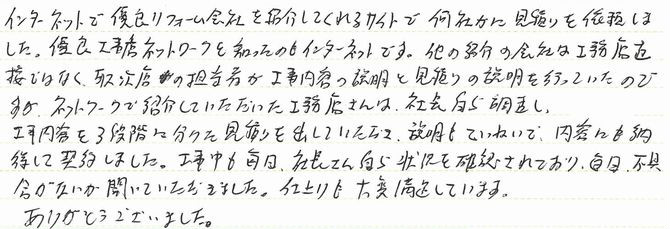 インターネットで優良リフォーム会社を紹介してくれるサイトで何社かに見積りを依頼しま
した。優良工事店ネットワークを知ったのもインターネットです。他の紹介の会社は工務店直
接ではなく、取次店の担当者が工事内容の説明と見積りの説明を行っていたので
すが、ネットワークで紹介していただいた工務店さんは、社長自ら調査し、
工事内容を3段階に分けた見積りを出していただき、説明もていねいで、内容にも納
得して契約しました。工事中も毎日、社長さん自ら状況を確認されており、毎日、不具
合がないか聞いていただきました。仕上りも大変満足しています。
ありがとうございました。